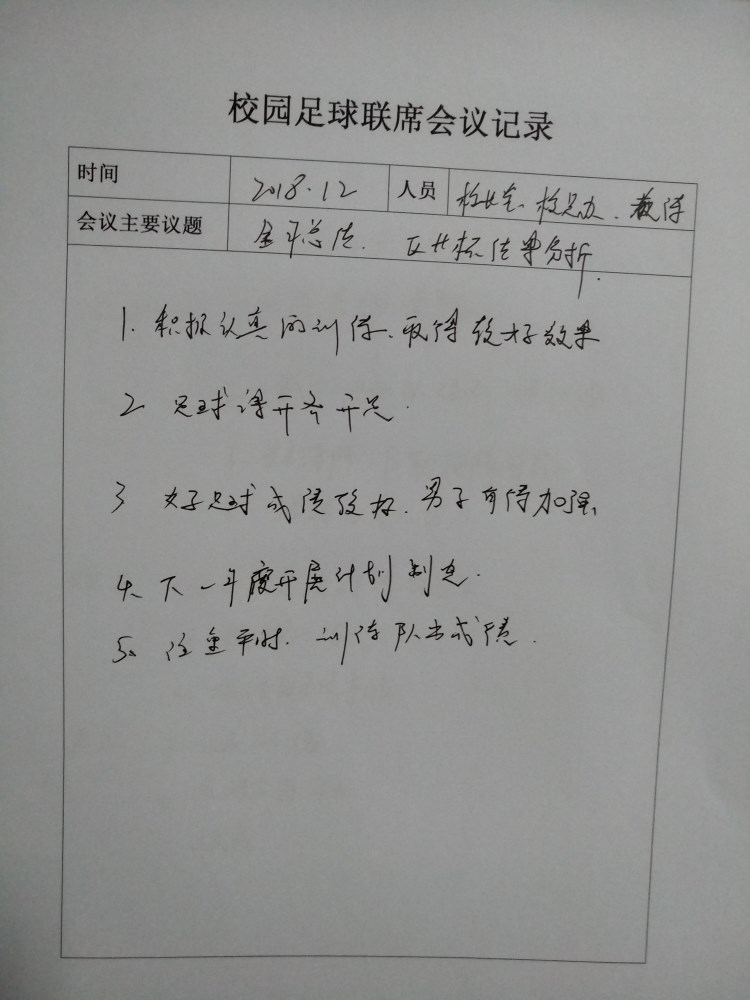 校园足球联席会议记录
时间 2018.12 人员 校足办、教练
会议主要议题 全年总结. 区长杯结果分析.
1. 积极认真的训练、取得较好效果
2 足球课开齐开足.
3 女子足球成绩较好. 男子有待加强.
4、下一年度开展计划制定.
5、注重平时. 训练队出成绩.